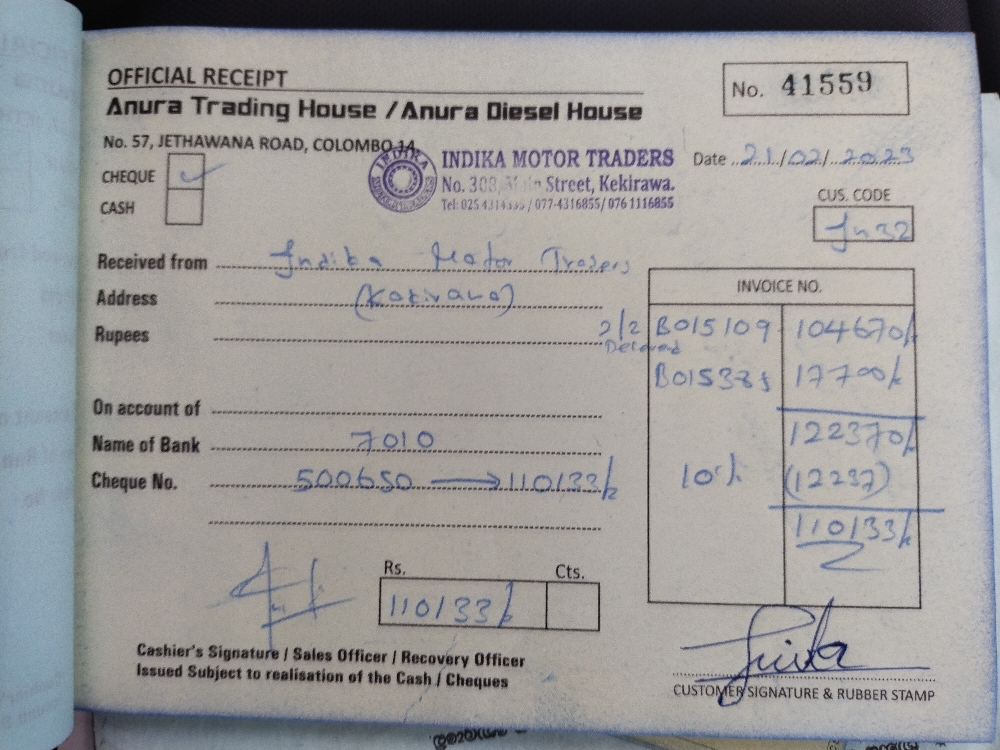 OFFICIAL RECEIPT
No. 41559
Anura Trading House / Anura Diesel House
No. 57, JETHAWANA ROAD, COLOMBO 14
INDIKA
INDIKA MOTOR TRADERS
No. 308, Main Street, Kekirawa.
Tel: 025 / 077-4316855 / 076 1116855
Date 21/02/2023
CHEQUE ✓
CASH
CUS. CODE
Received from Indika Motor Traders
Address
Rupees
INVOICE NO.
2/2 B015109 104670/-
17700/-
On account of
122370/-
Name of Bank 7010
10% (12237)
Cheque No. 500650 → 110133/-
110133/-
Rs. Cts.
110133/-
Cashier's Signature / Sales Officer / Recovery Officer
Issued Subject to realisation of the Cash / Cheques
CUSTOMER SIGNATURE & RUBBER STAMP